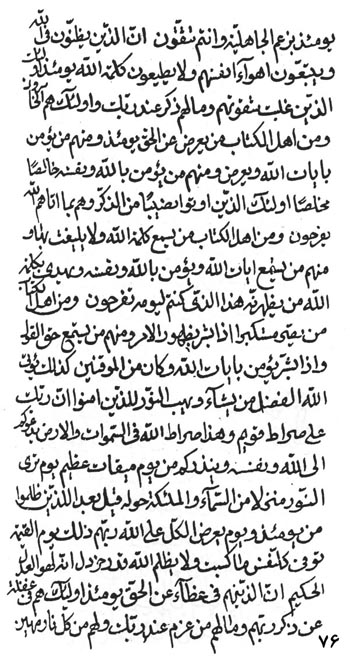 يومئذ بزعم الجاهلية وانتم تتقون انّ الذين يظنّون فى الله
ويتبعون اهوآء انفسهم ولا يطيعون كلمة الله يومئذ اولئك
الذين غلبت شقوتهم ومالهم ذكر عند ربك واولئك هم الخاسرون
ومن اهل الكتاب من يعرض عن الحق يومئذ ومنهم من يؤمن
بايات الله ويعرض ومنهم من يؤمن بالله وبنفسه خالصًا
مخلصًا اولئك الذين اوتوا نصيبًا من الذكر وهم بما اتاهم الله
يفرحون ومن اهل الكتاب من يسمع كلمة الله ولا يلتفت بها و
منهم من يستمع ايات الله ويؤمن بالله وبنفسه ويهدى بكلمة
الله من يظهر به هذا الذى كنتم ليومه تفرحون ومن اهل الكتاب
من تعصى مستكبرا اذا بشر بظهور الامر ومنهم من يستمع حق القول
واذا بشر يؤمن بايات الله وكان من الموقنين كذلك يؤتى
الله الفضل من يشآء ويهب النور للذين امنوا انّ ربك
على صراط قويم وهذا صراط الله فى السموات والارض يدعوكم
الى الله وبنفسه وينذركم من يوم ميقات عظيم يوم ترى
النور منزلا من السمآء والملئكة حوله قيل بعد الذين ظلموا
من يومئذ ويوم يعرض الكل على الله ربهم ذلك يوم القيمة
توفى كل نفس ما كسبت ولا يظلم الله قدر خردل انه لهو العزيز
الحكيم انّ الذينهم فى غطآء عن الحق يومئذ اولئك هم فى غفلة
عن ذكر ربهم ومالهم من عزم عند ربك ولهم من كل نار مهين
۷۶